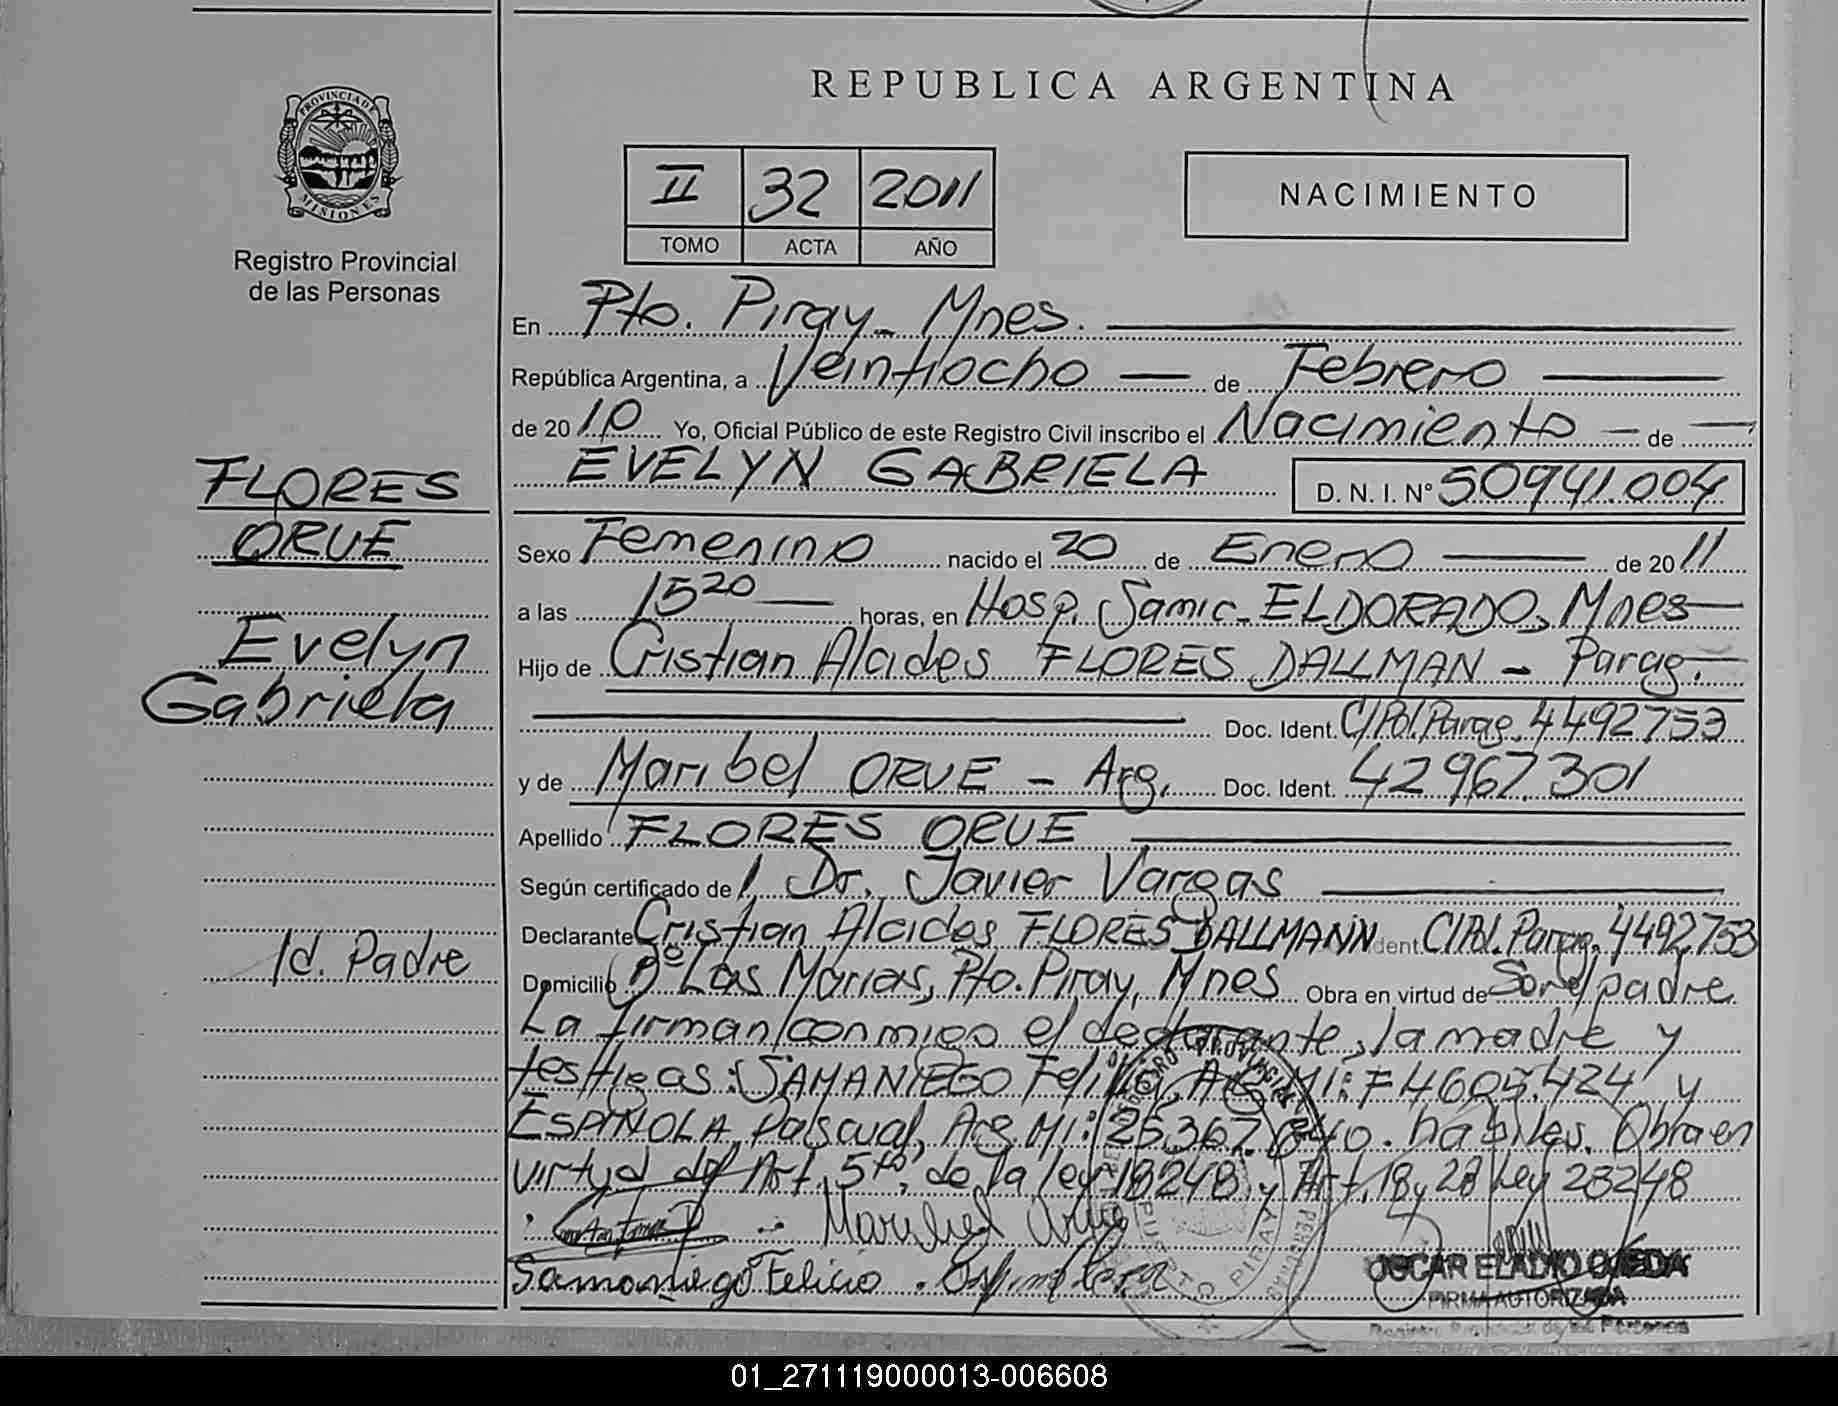 REPUBLICA ARGENTINA
PROVINCIA DE MISIONES
Registro Provincial
de las Personas
II 32 2011
TOMO ACTA AÑO
NACIMIENTO
En Pto. Piray - Mnes.
República Argentina, a Veintiocho de Febrero
de 20 10 Yo, Oficial Público de este Registro Civil inscribo el Nacimiento de
EVELYN GABRIELA D. N. I. N° 50941.004
FLORES
ORUE
Evelyn
Gabriela
Sexo Femenino nacido el 20 de Enero de 20 11
a las 15 20 horas, en Hosp. Samic - ELDORADO, Mnes
Hijo de Cristian Alcides FLORES DALLMAN - Parag.
Doc. Ident. C/Pol. Parag. 4492753
y de Maribel ORUE - Arg. Doc. Ident. 42967.301
Apellido FLORES ORUE
Según certificado de Dr. Javier Vargas
Declarante Cristian Alcides FLORES DALLMANN dent. C/Pol. Parag. 4492753
Id. Padre
Domicilio B° Las Marias, Pto. Piray, Mnes Obra en virtud de Son el padre.
La firman conmigo el declarante, la madre y
testigos: SAMANIEGO Arg. MI: F 4605.424 y
ESPINOLA, Pascual, Arg. MI: 25.367. habiles. Obra en
virtud del Art. 5to. de la ley 18248 y Art. 18 y 28 Ley 23248
Maribel Orue
Samaniego Felicio. Espinola
OSCAR ELADIO OJEDA
FIRMA AUTORIZADA
Registro Provincial de las Personas
PUERTO PIRAY
01_271119000013-006608